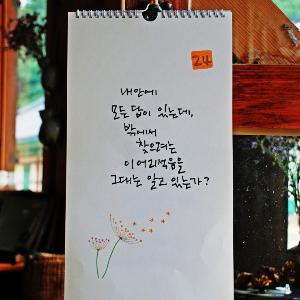 24
내 안에
모든 답이 있는데,
밖에서
찾으려는
이 어리석음을
그대는 알고 있는가?